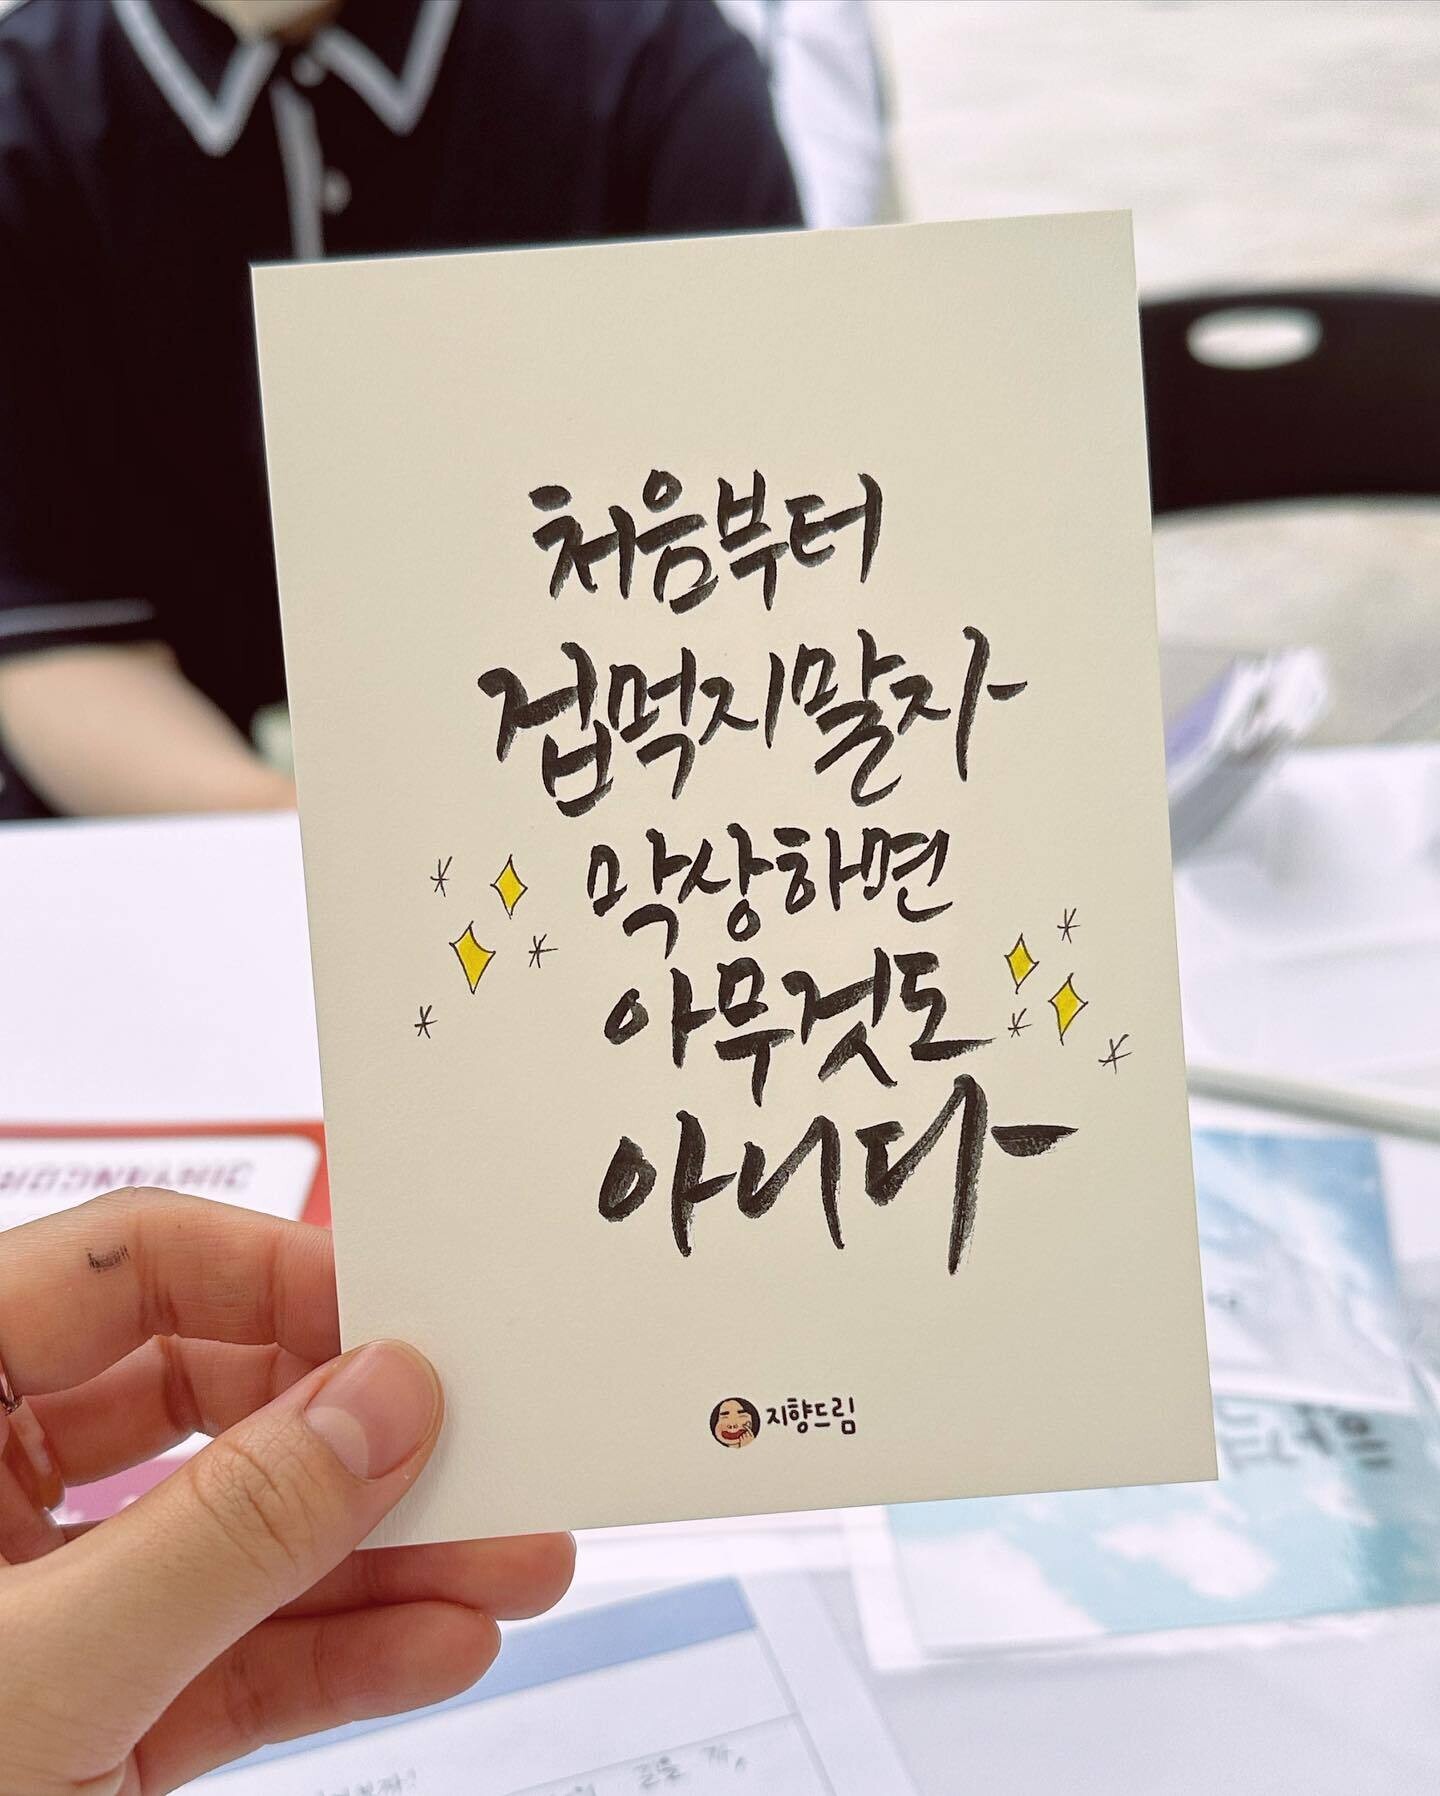 처음부터
겁먹지말자
막상하면
아무것도
아니다
지향드림